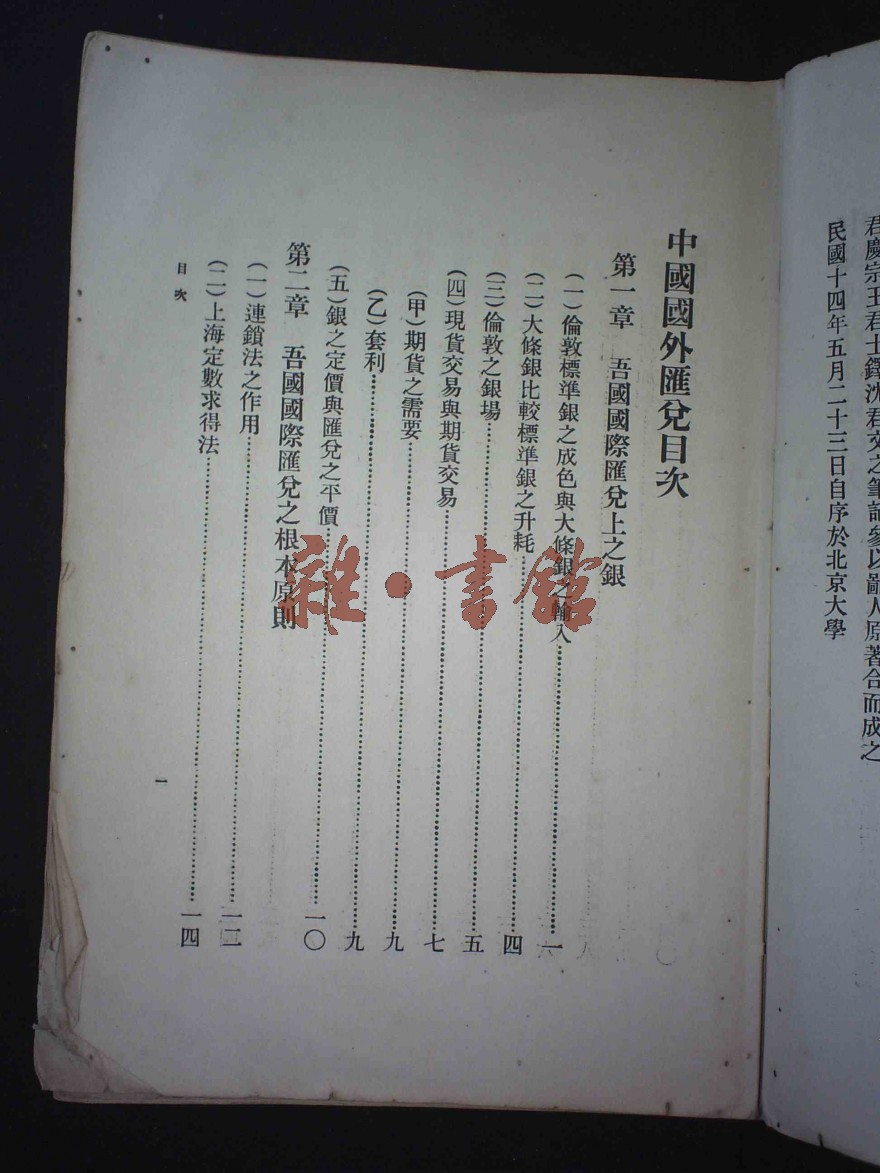 君慶宗王君士鐸沈君文之筆記參以鄙人原著合而成之
民國十四年五月二十三日自序於北京大學
中國國外匯兌目次
第一章　吾國國際匯兌上之銀
（一）倫敦標準銀之成色與大條銀之輸入……一
（二）大條銀比較標準銀之升耗……四
（三）倫敦之銀場……五
（四）現貨交易與期貨交易……七
（甲）期貨之需要……九
（乙）套利……九
（五）銀之定價與匯兌之平價……一〇
第二章　吾國國際匯兌之根本原則
（一）連鎖法之作用……一二
（二）上海定數求得法……一四
目次
一
雜·書館